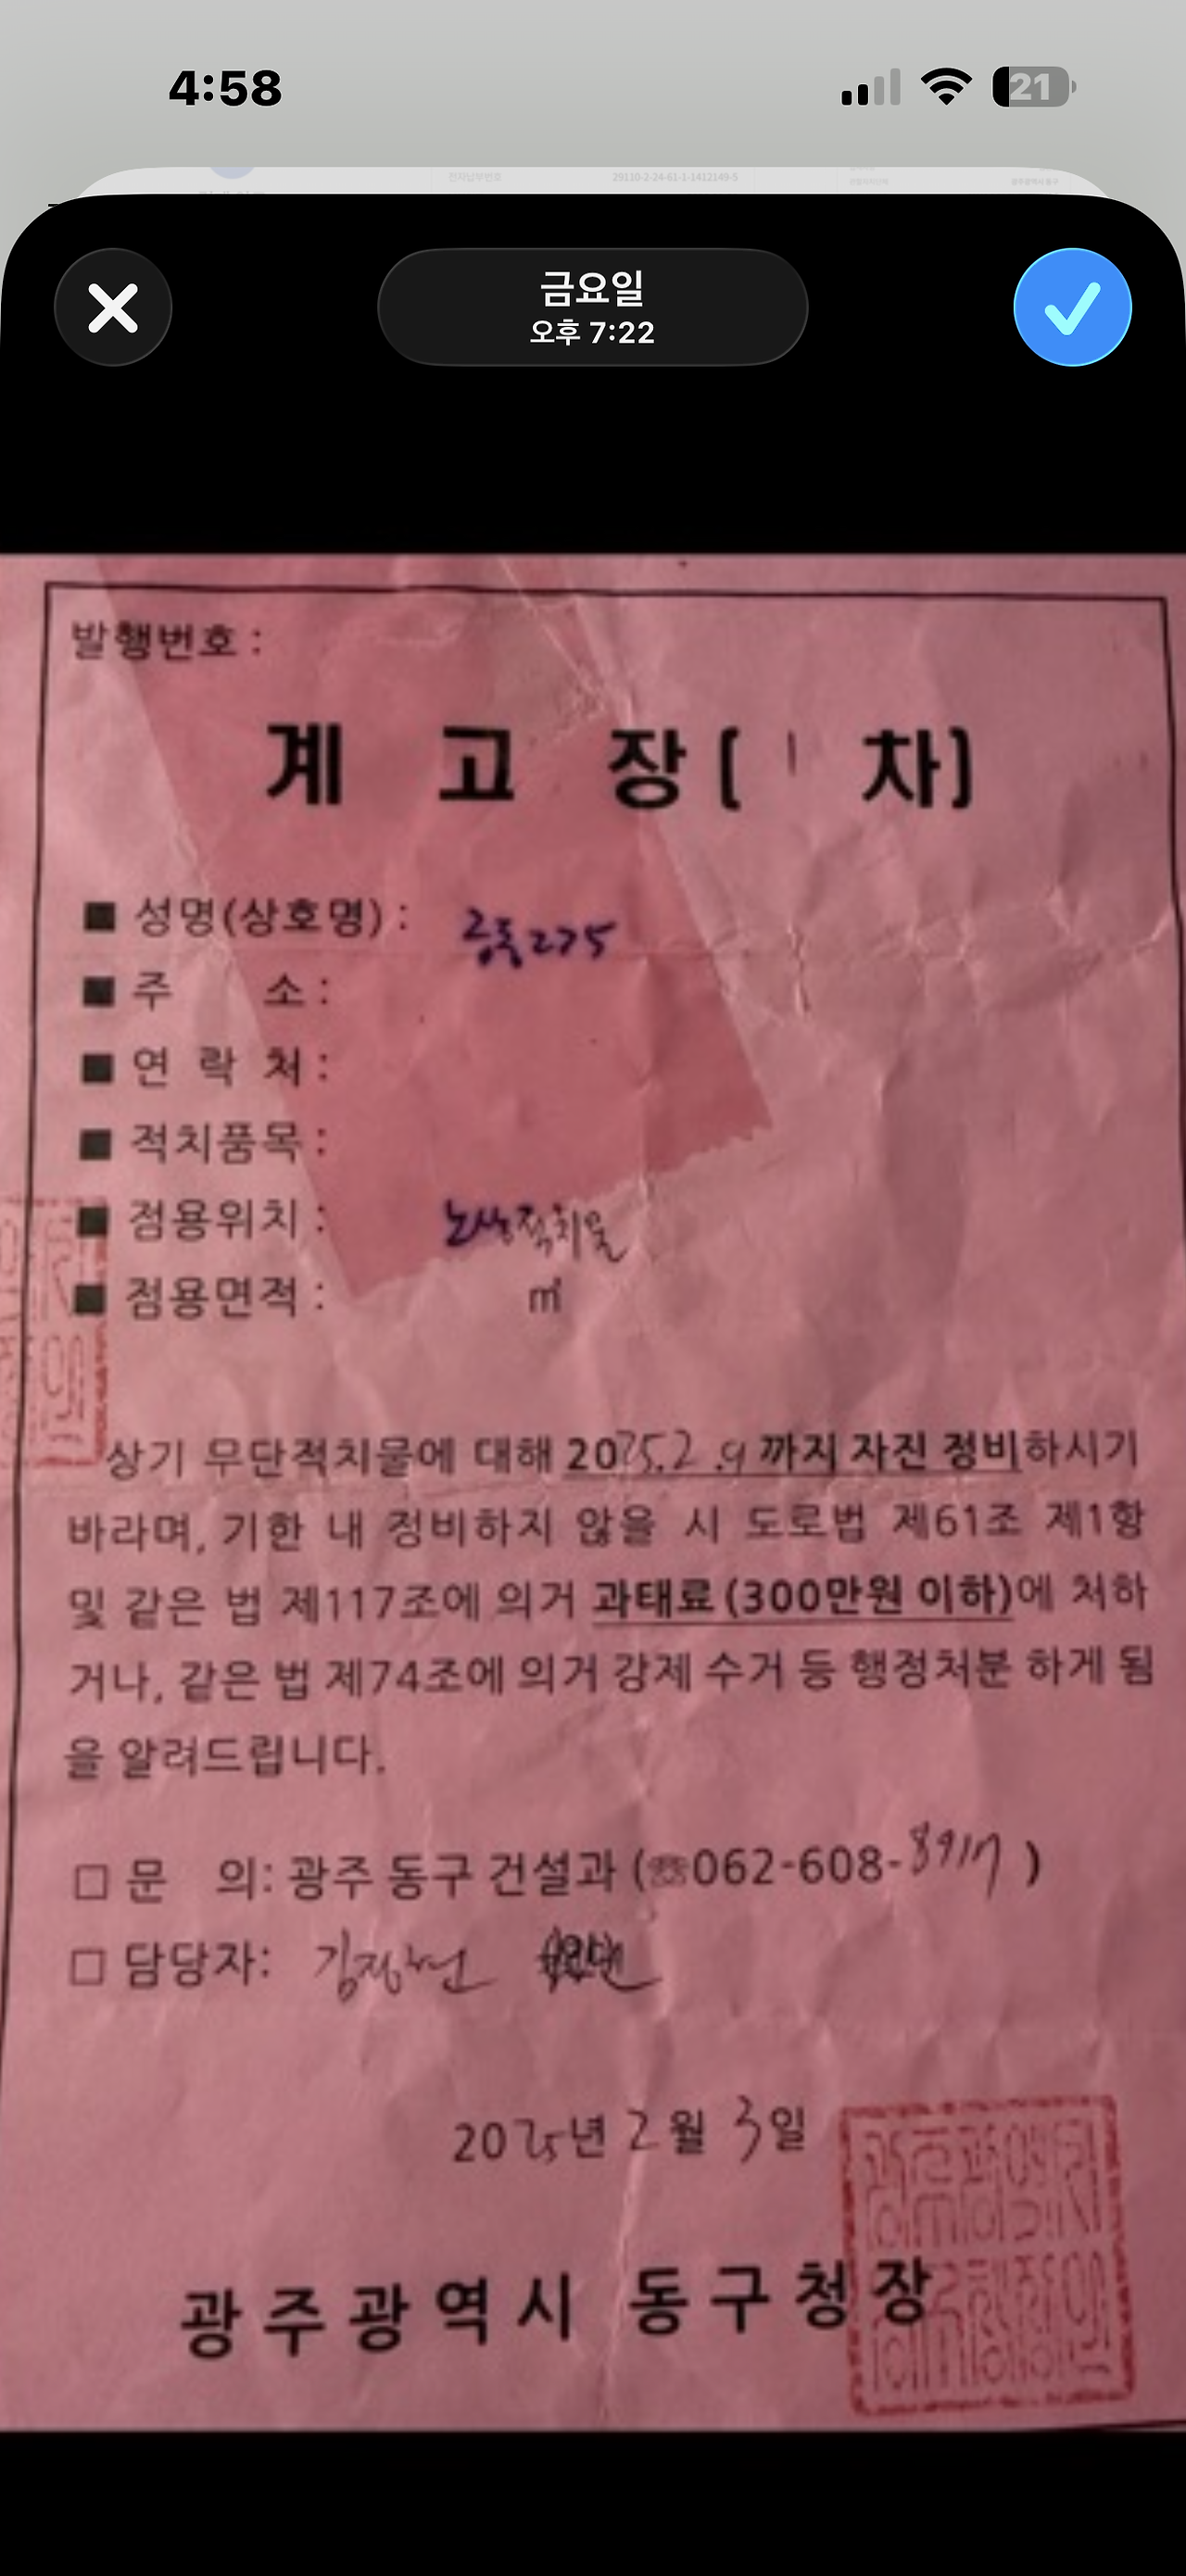 4:58
21
전자납부번호 29110-2-24-61-1-1412149-5
광주광역시 동구
금요일
오후 7:22
발행번호 :
계 고 장 [ 1 차]
■ 성명(상호명) : 궁동275
■ 주 소 :
■ 연 락 처 :
■ 적치품목 :
■ 점용위치 : 노상적치물
■ 점용면적 : ㎡
상기 무단적치물에 대해 2025.2.9 까지 자진 정비하시기
바라며, 기한 내 정비하지 않을 시 도로법 제61조 제1항
및 같은 법 제117조에 의거 과태료 (300만원 이하)에 처하
거나, 같은 법 제74조에 의거 강제 수거 등 행정처분 하게 됨
을 알려드립니다.
□ 문 의: 광주 동구 건설과 (☏062-608-8917 )
□ 담당자:
2025년 2월 3일
광주광역시 동구청장